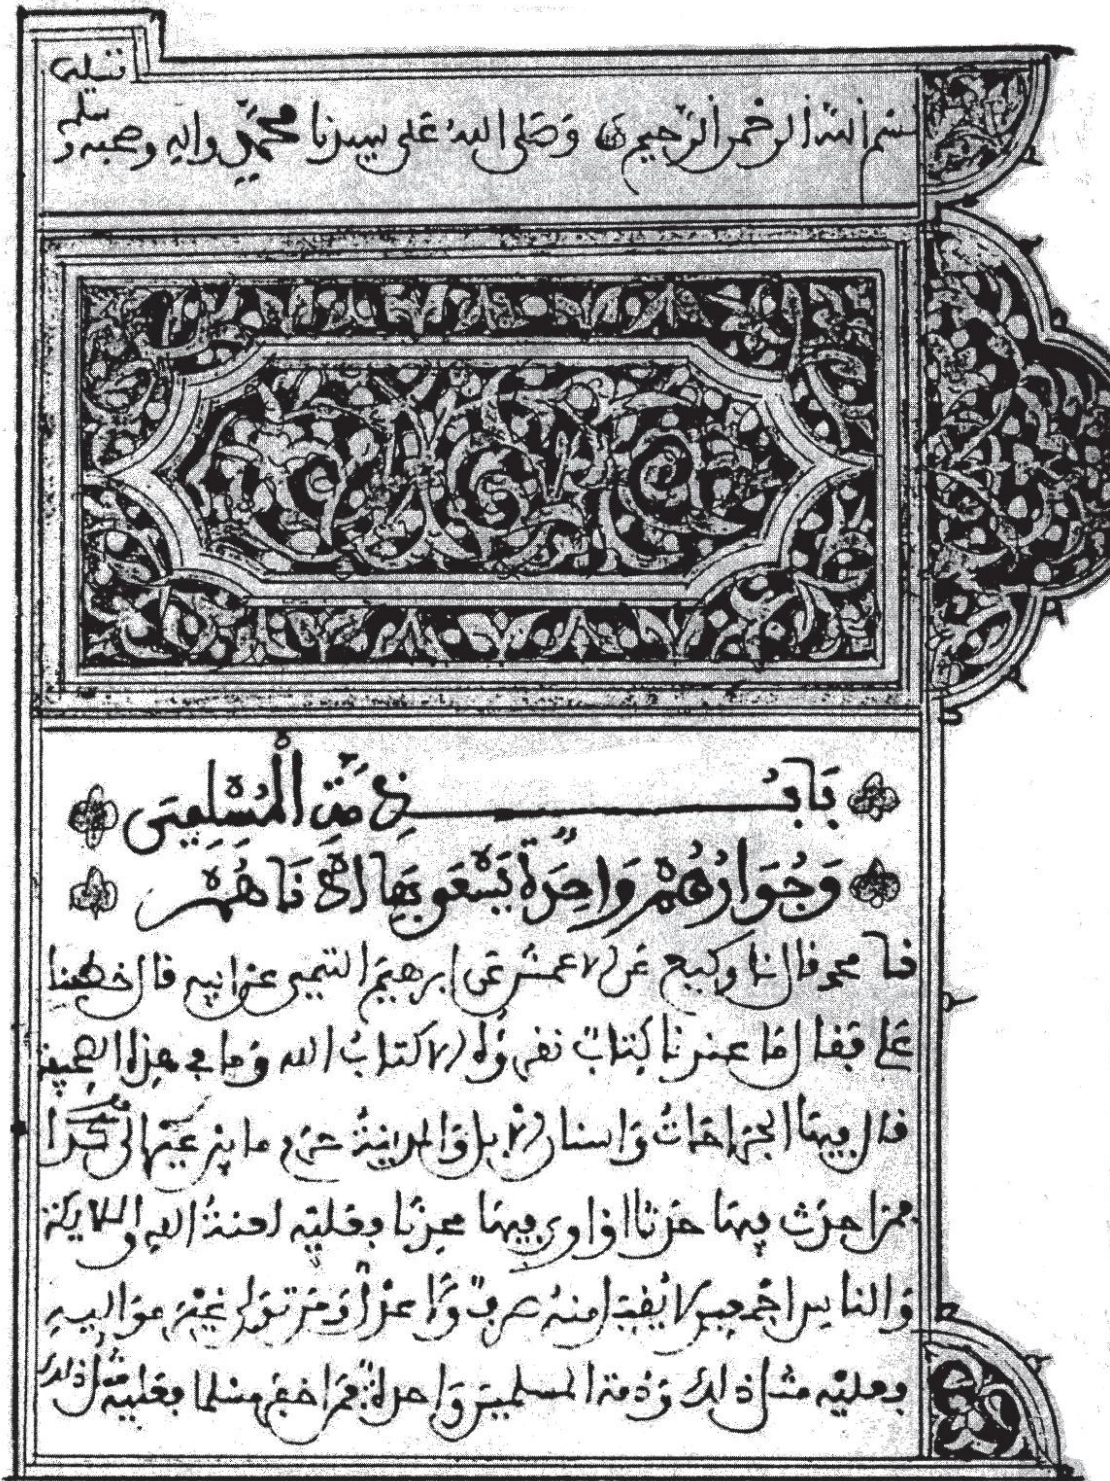 بسم الله الرحمن الرحيم وصلى الله على سيدنا محمد واله وصحبه وسلم
تسليما
بَابُ ذِمَّةِ الْمُسْلِمِينَ
وَجُوَارُهُمْ وَاحِدَةٌ يَسْعَى بِهَا أَدْنَاهُمْ
نا محمد قال انا وكيع عن الاعمش عن ابرهيم التيمي عن ابيه قال خطبنا
علي فقال ما عندنا كتابٌ نقرؤه الا كتابُ الله وما في هذه الصحيفة
قال فيها الجراحاتُ واسنان الابل والمدينةُ حرم ما بين عير الى كذا
فمن احدث فيها حدثا او اوى فيها محدثا فعليه لعنةُ الله والملائكة
والناس اجمعين لا يُقبل منهُ صرفٌ ولا عدلٌ ومن تولى غير مواليه
فعليه مثل ذلك وذمة المسلمين واحدةٌ فمن اخفر مسلما فعليه مثل ذلك